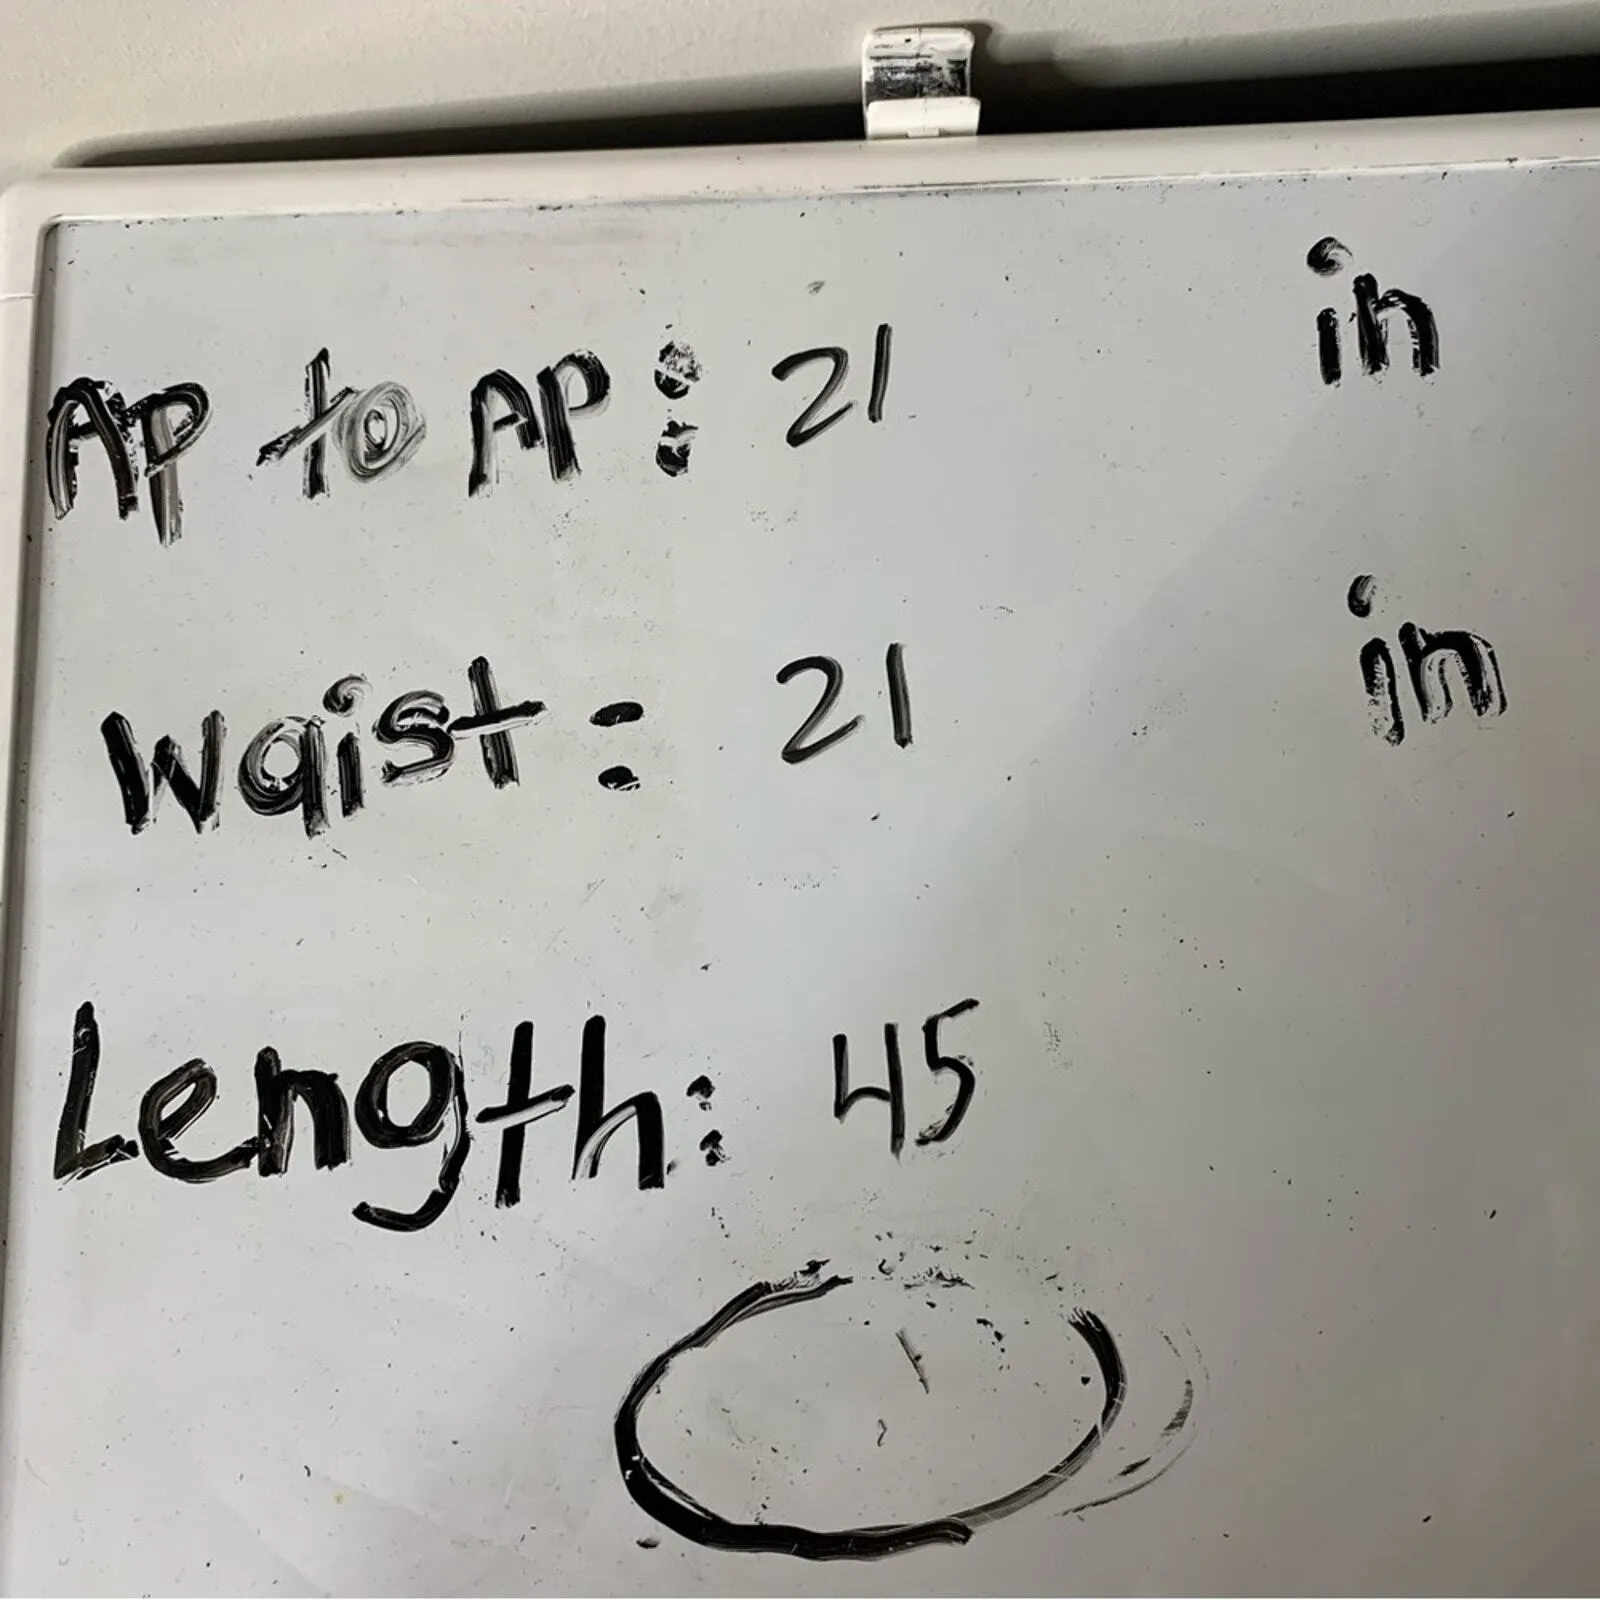 Ap to AP: 21 in
Waist: 21 in
Length: 45